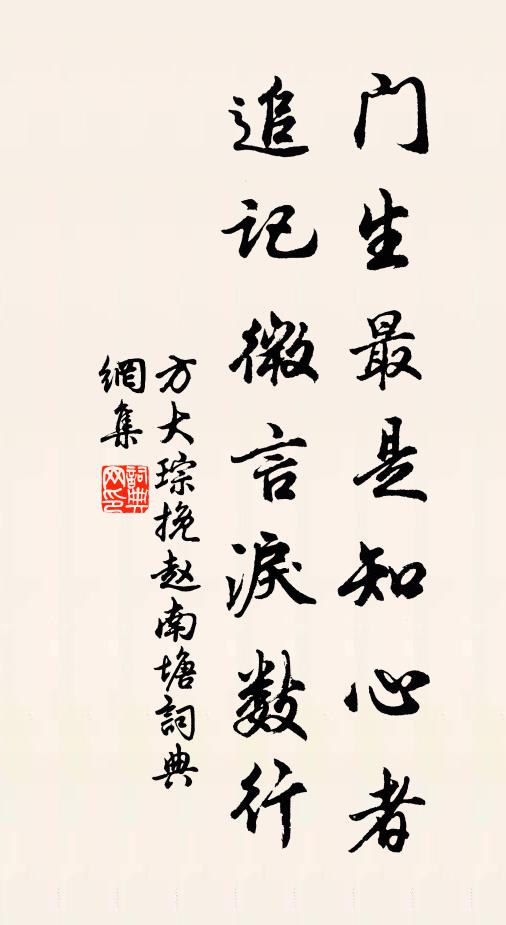 门生最是知心者
追记微言淚数行
方大琮挽赵南塘詞典
網集
詞典
网印